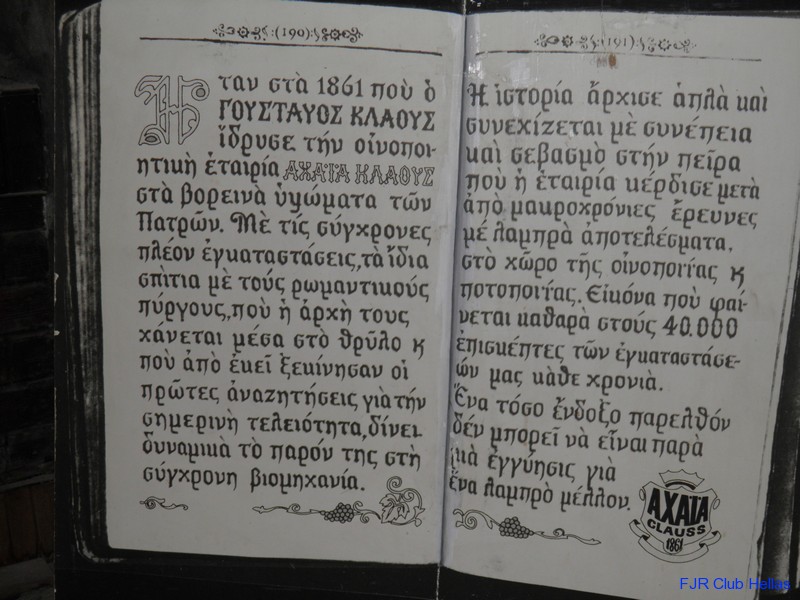 (190)
Ἦταν στὰ 1861 ποὺ ὁ
ΓΟΥΣΤΑΥΟΣ ΚΛΑΟΥΣ
ἵδρυσε τήν οἰνοποι-
ητικὴ ἑταιρία ΑΧΑΪΑ ΚΛΑΟΥΣ
στὰ βορεινὰ ὑψώματα τῶν
Πατρῶν. Μὲ τίς σύγχρονες
πλέον ἐγκαταστάσεις, τὰ ἴδια
σπίτια μὲ τούς ρωμαντικούς
πύργους, ποὺ ἡ ἀρχὴ τους
χάνεται μέσα στὸ θρῦλο κ
ποὺ ἀπὸ ἐκεῖ ξεκίνησαν οἱ
πρῶτες ἀναζητήσεις γιὰ τήν
σημερινὴ τελειότητα, δίνει
δυναμικὰ τὸ παρόν της στὴ
σύγχρονη βιομηχανία.
(191)
Ἡ ἱστορία ἄρχισε ἁπλὰ καὶ
συνεχίζεται μὲ συνέπεια
καὶ σεβασμὸ στήν πεῖρα
ποὺ ἡ ἑταιρία κέρδισε μετὰ
ἀπὸ μακροχρόνιες ἔρευνες
μέ λαμπρὰ ἀποτελέσματα,
στὸ χῶρο τῆς οἰνοποιΐας κ
ποτοποιΐας. Εἰκόνα ποὺ φαί-
νεται καθαρὰ στούς 40.000
ἐπισκέπτες τῶν ἐγκαταστάσε-
ών μας κάθε χρονιὰ.
Ἕνα τόσο ἔνδοξο παρελθόν
δέν μπορεῖ νὰ εἶναι παρὰ
μιὰ ἐγγύησις γιὰ
ἕνα λαμπρὸ μέλλον.
ΑΧΑΪΑ
CLAUSS
1861
FJR Club Hellas